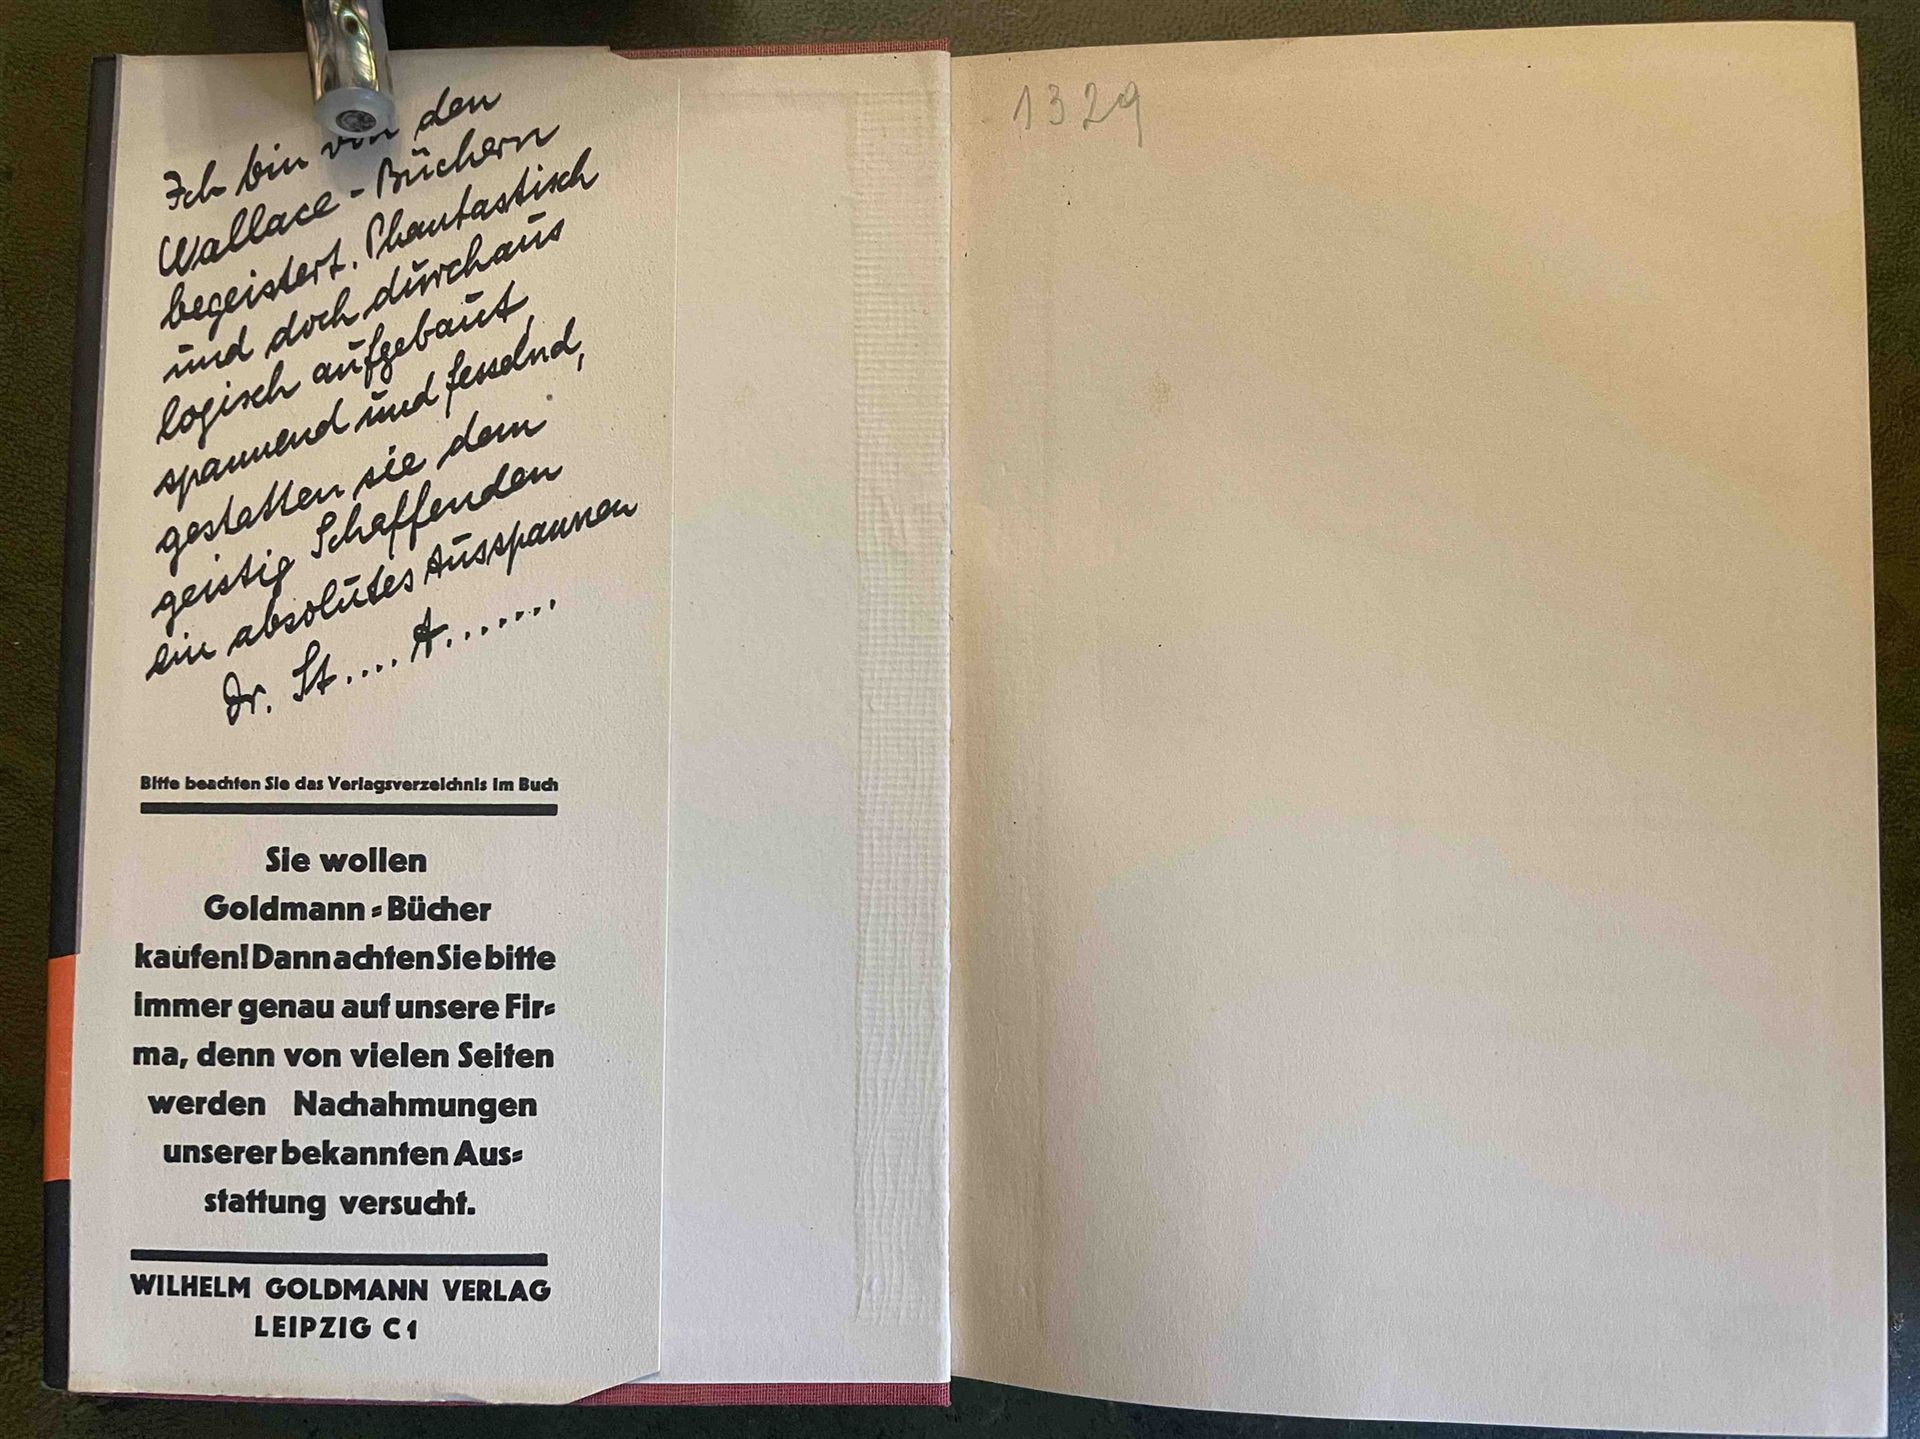 Ich bin von den
Wallace-Büchern
begeistert. Phantastisch
und doch durchaus
logisch aufgebaut,
spannend und fesselnd,
gestatten sie dem
geistig Schaffenden
ein absolutes Ausspannen
Dr. St.... A.......
Bitte beachten Sie das Verlagsverzeichnis im Buch
Sie wollen
Goldmann=Bücher
kaufen! Dann achten Sie bitte
immer genau auf unsere Fir=
ma, denn von vielen Seiten
werden Nachahmungen
unserer bekannten Aus=
stattung versucht.
WILHELM GOLDMANN VERLAG
LEIPZIG C1
1329